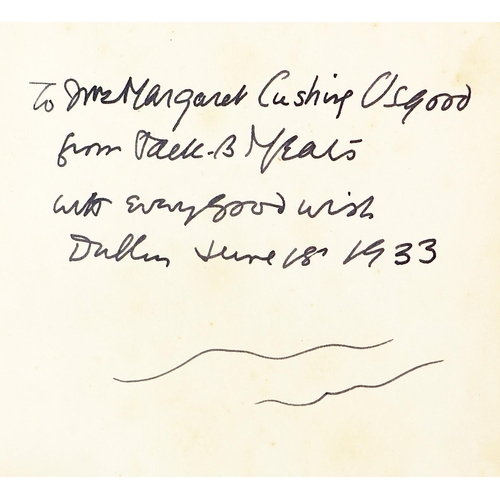 To Mrs Margaret Cushing Osgood
from Jack. B Yeats
with every good wish
Dublin June 18 1933